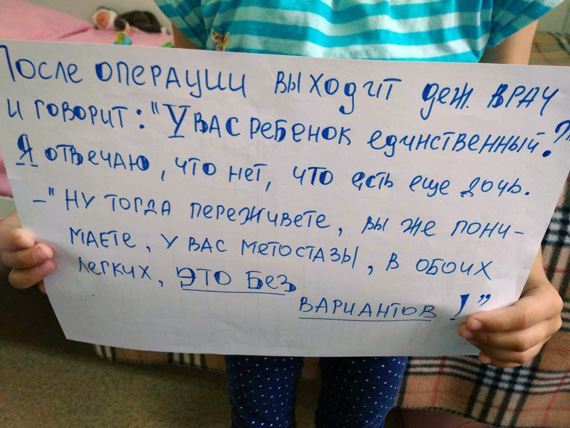 После операции выходит деж. врач
и говорит: "У вас ребенок единственный.?"
Я отвечаю, что нет, что есть еще дочь.
–"Ну тогда переживете, вы же пони-
маете, у вас метостазы, в обоих
легких, это без
вариантов!"